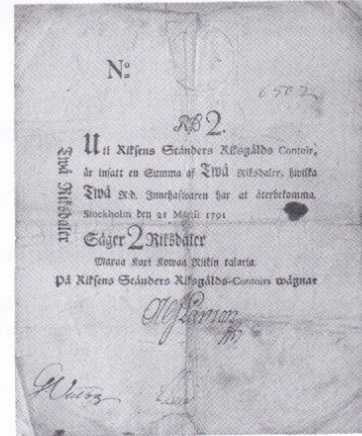 No
6502
RD 2.
Uti Riksens Ständers Riksgälds Contoir,
är insatt en Summa af Twå Riksdaler, hwilka
Twå R:d. Innehafwaren har at återbekomma.
Stockholm den 21 Martii 1791
Säger 2 Riksdaler
Maxaa Kaxi Kowaa Riikin talaria.
På Riksens Ständers Riksgälds-Contoirs wägnar
Twå Riksdaler